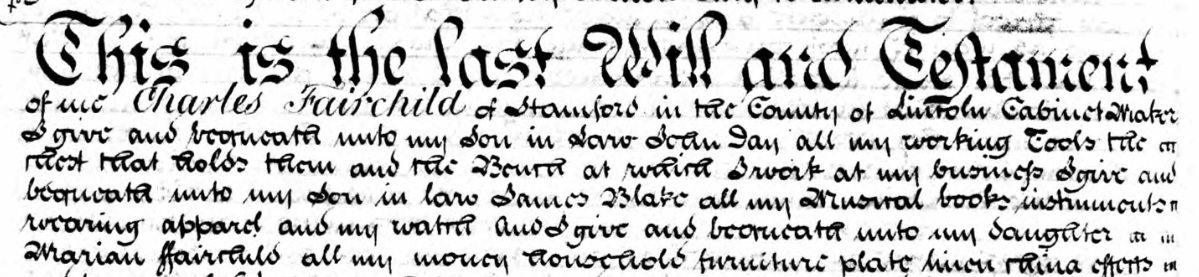 This is the last Will and Testament
of me Charles Fairchild of Stamford in the County of Lincoln Cabinet Maker
I give and bequeath unto my Son in Law John Day all my working Tools the
Chest that holds them and the Bench at which I work at my business I give and
bequeath unto my Son in law James Blake all my Musical books instruments
wearing apparel and my watch And I give and bequeath unto my daughter
Marian ffairchild all my money household furniture plate linen china effects